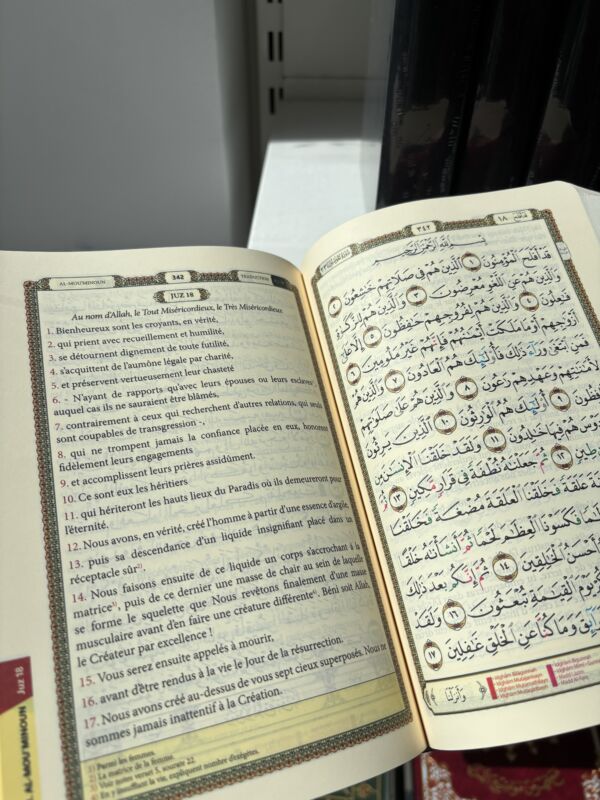 AL-MOU'MINOUN
342
TRADUCTION
JUZ 18
Au nom d'Allah, le Tout Miséricordieux, le Très Miséricordieux
1. Bienheureux sont les croyants, en vérité,
2. qui prient avec recueillement et humilité,
3. se détournent dignement de toute futilité,
4. s'acquittent de l'aumône légale par charité,
5. et préservent vertueusement leur chasteté
6. - N'ayant de rapports qu'avec leurs épouses ou leurs esclaves
auquel cas ils ne sauraient être blâmés,
7. contrairement à ceux qui recherchent d'autres relations, qui seuls
sont coupables de transgression -,
8. qui ne trompent jamais la confiance placée en eux, honorent
fidèlement leurs engagements
9. et accomplissent leurs prières assidûment.
10. Ce sont eux les héritiers
11. qui hériteront les hauts lieux du Paradis où ils demeureront pour
l'éternité.
12. Nous avons, en vérité, créé l'homme à partir d'une essence d'argile,
13. puis sa descendance d'un liquide insignifiant placé dans un
réceptacle sûr²⁾,
14. Nous faisons ensuite de ce liquide un corps s'accrochant à la
matrice³⁾, puis de ce dernier une masse de chair au sein de laquelle
se forme le squelette que Nous revêtons finalement d'une masse
musculaire avant d'en faire une créature différente⁴⁾. Béni soit Allah,
le Créateur par excellence !
15. Vous serez ensuite appelés à mourir,
16. avant d'être rendus à la vie le Jour de la résurrection.
17. Nous avons créé au-dessus de vous sept cieux superposés. Nous ne
sommes jamais inattentif à la Création.
1) Parmi les femmes.
2) La matrice de la femme.
3) Voir notre verset 5, sourate 22.
4) En y insufflant la vie, expliquent nombre d'exégètes.
Juz 18
AL-MOU'MINOUN
٣٤٢
١٨
بِسْمِ اللَّهِ الرَّحْمَٰنِ الرَّحِيمِ
قَدْ أَفْلَحَ الْمُؤْمِنُونَ ١ الَّذِينَ هُمْ فِي صَلَاتِهِمْ خَاشِعُونَ ٢
وَالَّذِينَ هُمْ عَنِ اللَّغْوِ مُعْرِضُونَ ٣ وَالَّذِينَ هُمْ لِلزَّكَاةِ
فَاعِلُونَ ٤ وَالَّذِينَ هُمْ لِفُرُوجِهِمْ حَافِظُونَ ٥ إِلَّا عَلَىٰ
أَزْوَاجِهِمْ أَوْ مَا مَلَكَتْ أَيْمَانُهُمْ فَإِنَّهُمْ غَيْرُ مَلُومِينَ ٦
فَمَنِ ابْتَغَىٰ وَرَاءَ ذَٰلِكَ فَأُولَٰئِكَ هُمُ الْعَادُونَ ٧ وَالَّذِينَ هُمْ
لِأَمَانَاتِهِمْ وَعَهْدِهِمْ رَاعُونَ ٨ وَالَّذِينَ هُمْ عَلَىٰ صَلَوَاتِهِمْ
٩ أُولَٰئِكَ هُمُ الْوَارِثُونَ ١٠ الَّذِينَ يَرِثُونَ
هُمْ فِيهَا خَالِدُونَ ١١ وَلَقَدْ خَلَقْنَا الْإِنْسَانَ
طِينٍ ١٢ ثُمَّ جَعَلْنَاهُ نُطْفَةً فِي قَرَارٍ مَكِينٍ ١٣ ثُمَّ
عَلَقَةً فَخَلَقْنَا الْعَلَقَةَ مُضْغَةً فَخَلَقْنَا
فَكَسَوْنَا الْعِظَامَ لَحْمًا ثُمَّ أَنْشَأْنَاهُ خَلْقًا
أَحْسَنُ الْخَالِقِينَ ١٤ ثُمَّ إِنَّكُمْ بَعْدَ ذَٰلِكَ
يَوْمَ الْقِيَامَةِ تُبْعَثُونَ ١٦ وَلَقَدْ
وَمَا كُنَّا عَنِ الْخَلْقِ غَافِلِينَ ١٧
وَأَنْزَلْنَا